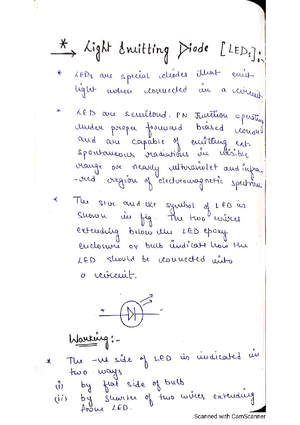 * → Light Emitting Diode [LEDs]:-
* LEDs are special diodes that emit
light when connected in a circuit
* LED are semicond. PN Junction operating
under proper forward biased
and are capable of emitting ext.
spontaneous radiations in visible
range or nearly ultraviolet and infra
-red region of electromagnetic spectrum
* The struc. and ckt symbol of LED is
shown in fig. The two wires
extending below the LED epoxy
enclosure or bulb indicate how the
LED should be connected into
a circuit.
Working:-
* The -ve side of LED is indicated in
two ways
(i) by flat side of bulb
(ii) by shorter of two wires extending
from LED.
Scanned with CamScanner